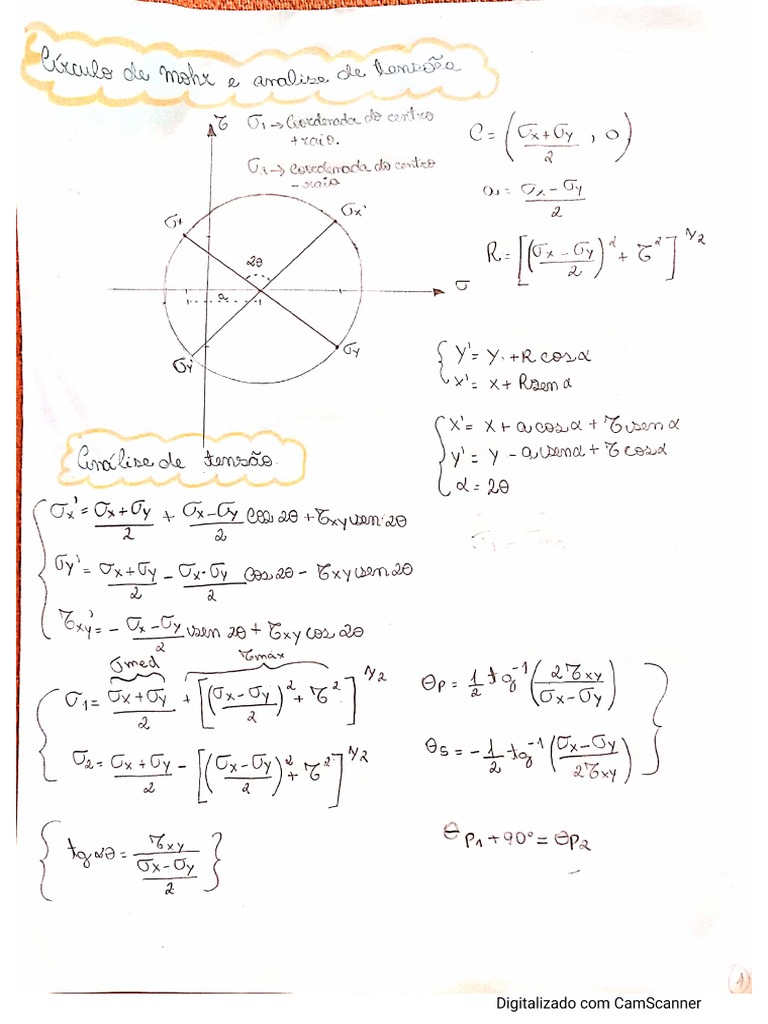 Círculo de mohr e analise de tensão
τ
σ₁ → Coordenada do centro
+ raio.
σ₂ → coordenada do centro
- raio
C = ( (σx + σy)/2 , 0 )
a = (σx - σy)/2
R = [ ((σx - σy)/2)² + τ² ]^1/2
σx
σx'
2θ
a
σ
σy'
σy
{ y' = y + R cos α
x' = x + R sen α
{ x' = x + a cos α + τ sen α
y' = y - a sen α + τ cos α
α = 2θ
Análise de tensão
{ σx' = (σx + σy)/2 + (σx - σy)/2 cos 2θ + τxy sen 2θ
σy' = (σx + σy)/2 - (σx - σy)/2 cos 2θ - τxy sen 2θ
τxy' = - (σx - σy)/2 sen 2θ + τxy cos 2θ
σmed τmax
{ σ₁ = (σx + σy)/2 + [ ((σx - σy)/2)² + τ² ]^1/2
σ₂ = (σx + σy)/2 - [ ((σx - σy)/2)² + τ² ]^1/2
θp = 1/2 tg⁻¹ ( 2τxy/(σx - σy) ) }
θs = - 1/2 tg⁻¹ ( (σx - σy)/2τxy )
{ tg 2θ = τxy/((σx - σy)/2) }
θp₁ + 90° = θp₂
1
Digitalizado com CamScanner